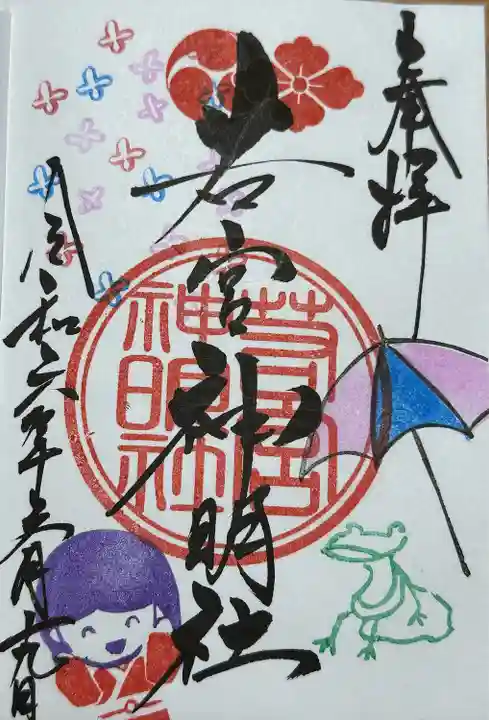 奉拝
若宮神明社
若宮
神明社
令和六年六月十九日